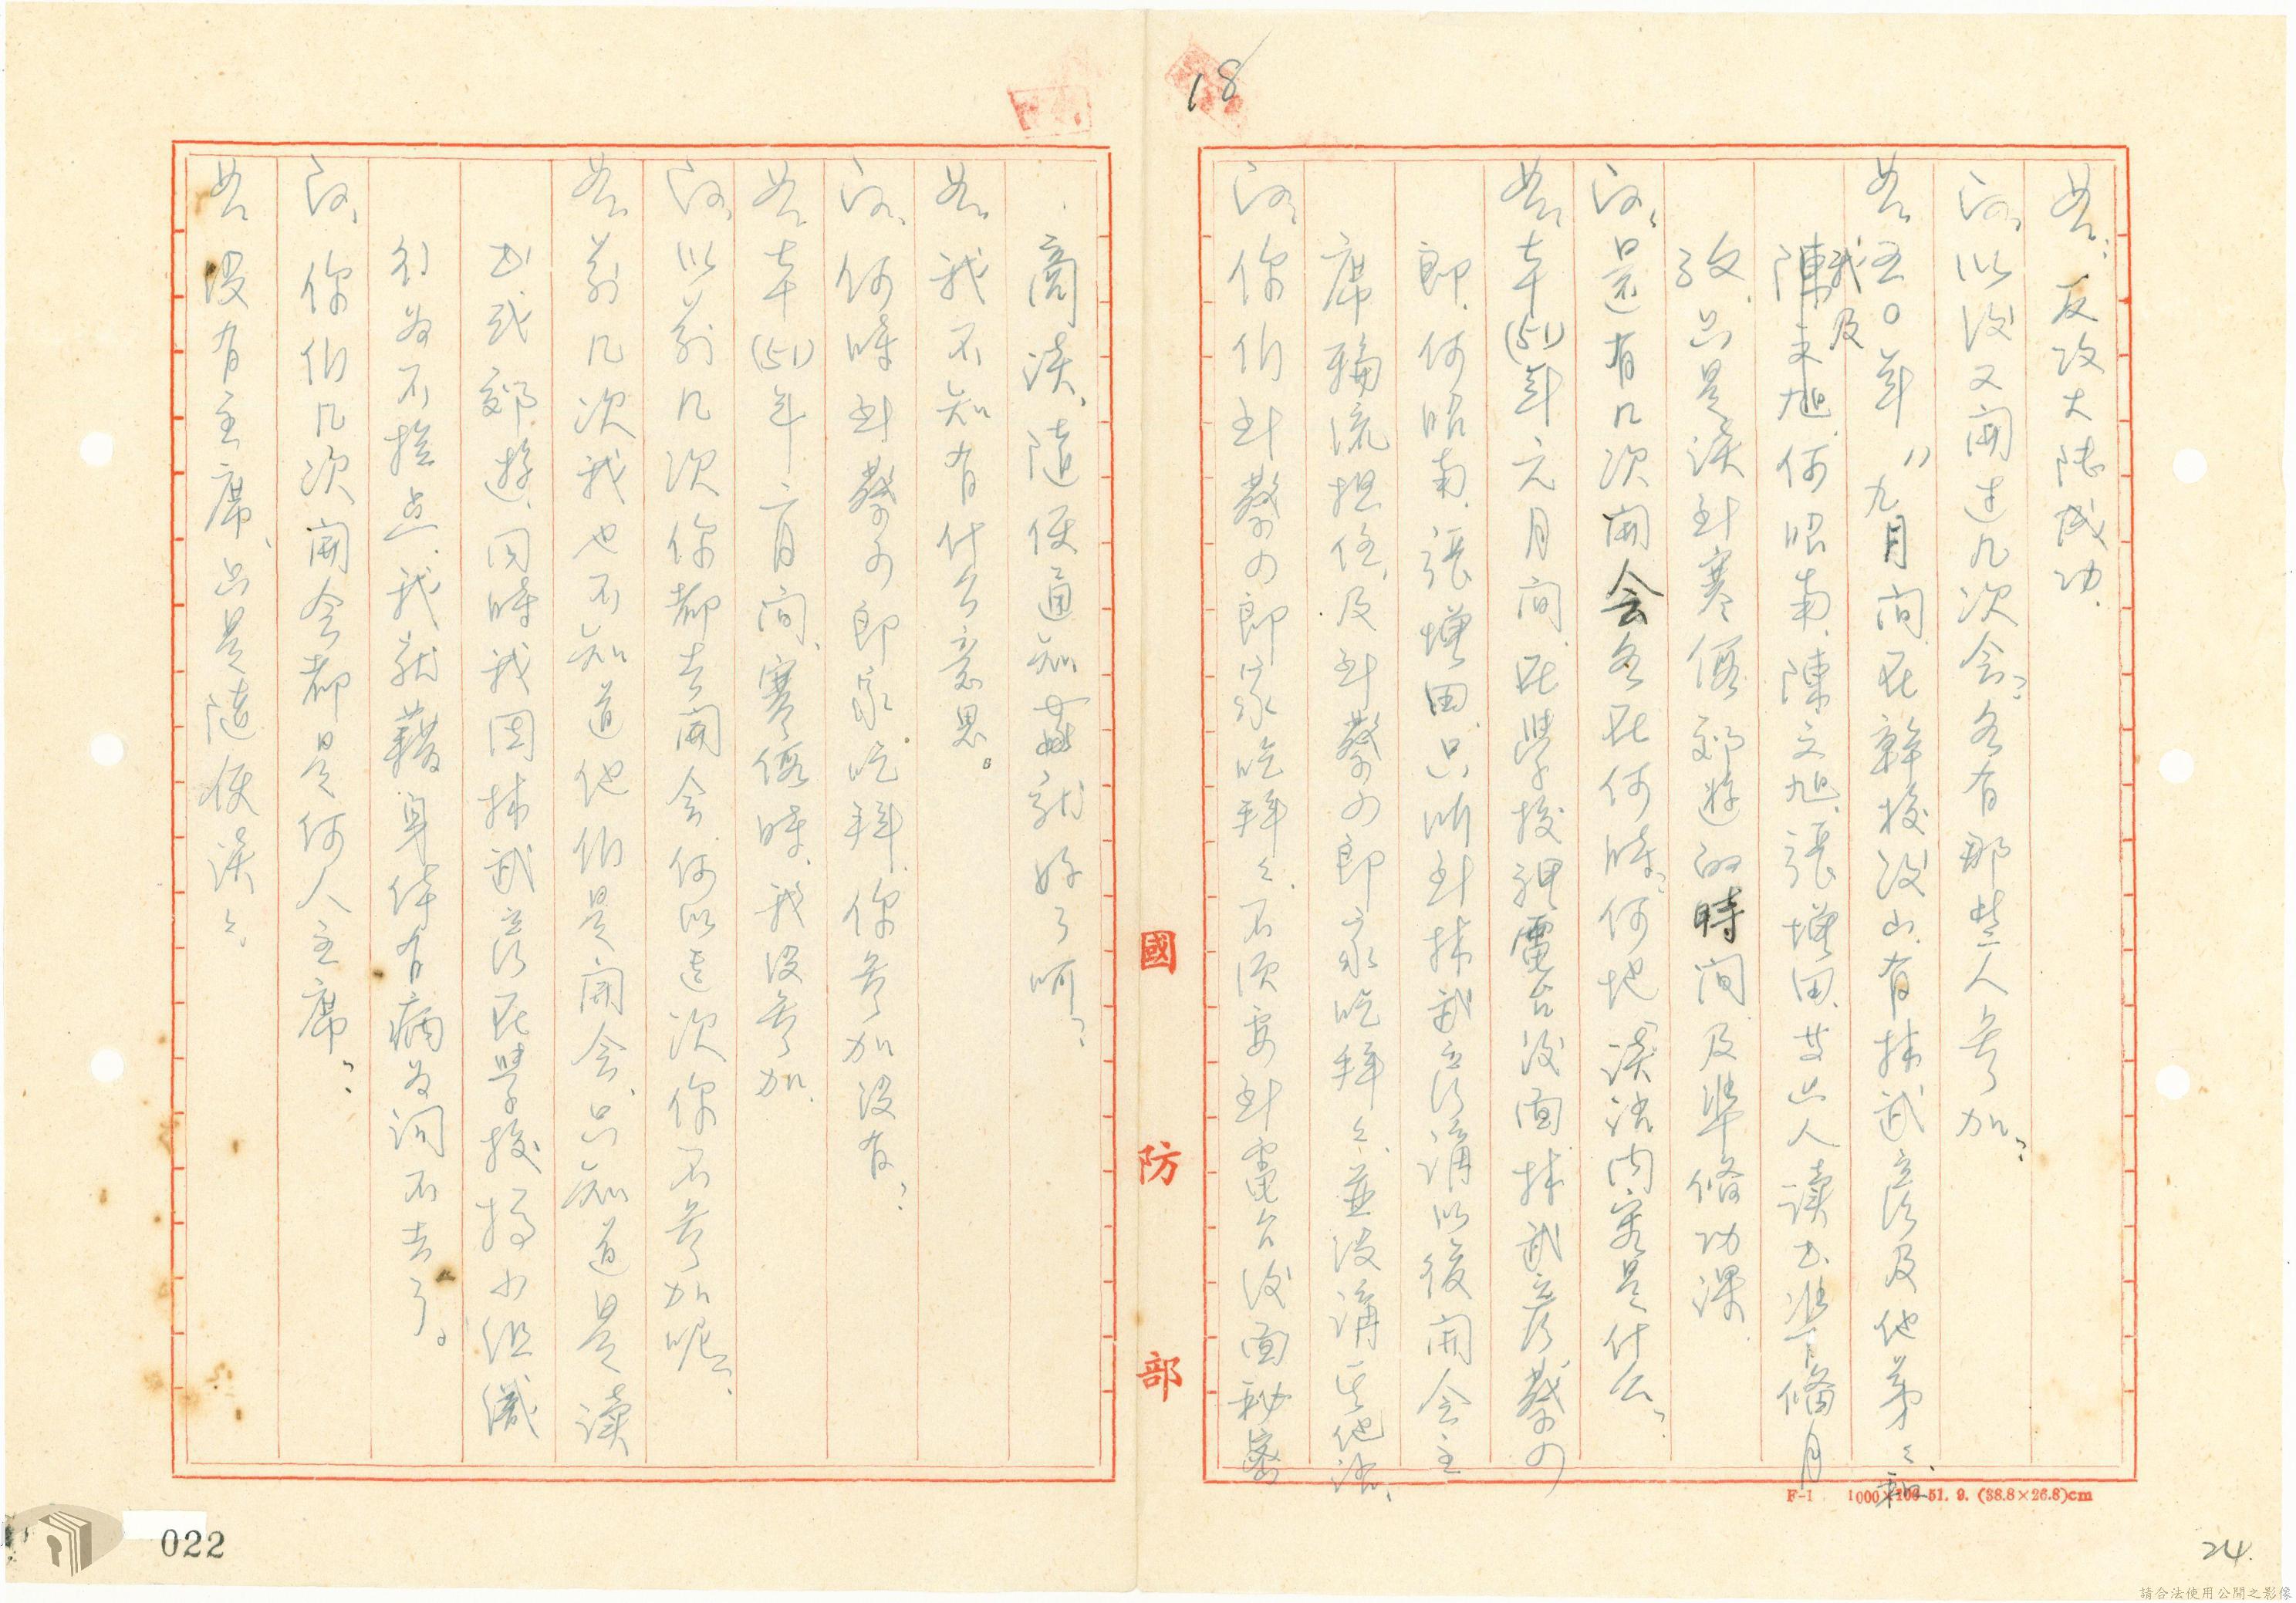 18
答：反攻大陸成功.
問、以後又開过几次会？各有那些人參加？
答、五〇年八、九月间、在幹校後山、有林武彥及他弟々、和
我及
陳文旭、何昭南、陳文旭、張增田、廿出人讀书、準俻月
放、只是談到寒假郊遊的時间、及準俻功課.
问、还有几次開会各在何時？何地？談話内容是什么？
答、本(51)年元月间、在學校裡電台後面、林武彥、蔡の
郎、何昭南、張增田、只听到林武彥講以後開会主
席輪流担任、及到蔡の郎家吃拜々、並没講其他話、
问、你们到蔡の郎家吃拜々、不須要到電台後面秘密
商談、隨便通知一声就好了呵？
答、我不知有什么意思。
问、何時到蔡の郎家吃拜、你參加没有？
答、本(51)年二月间、寒假時、我没參加.
问、以前几次你都去開会、何以這次你不參加呢？
答、前几次我也不知道他们是開会、只知道是讀
书或郊遊、同時我因林武彥在學校搞小組織
行為不捡点、我就藉身体有病為词不去了。
问、你们几次開会都是何人主席？
答、没有主席、只是隨便談々、
國防部
F-1 1000×100 51. 9. (38.8×26.8)cm
022
24.
請合法使用公開之影像